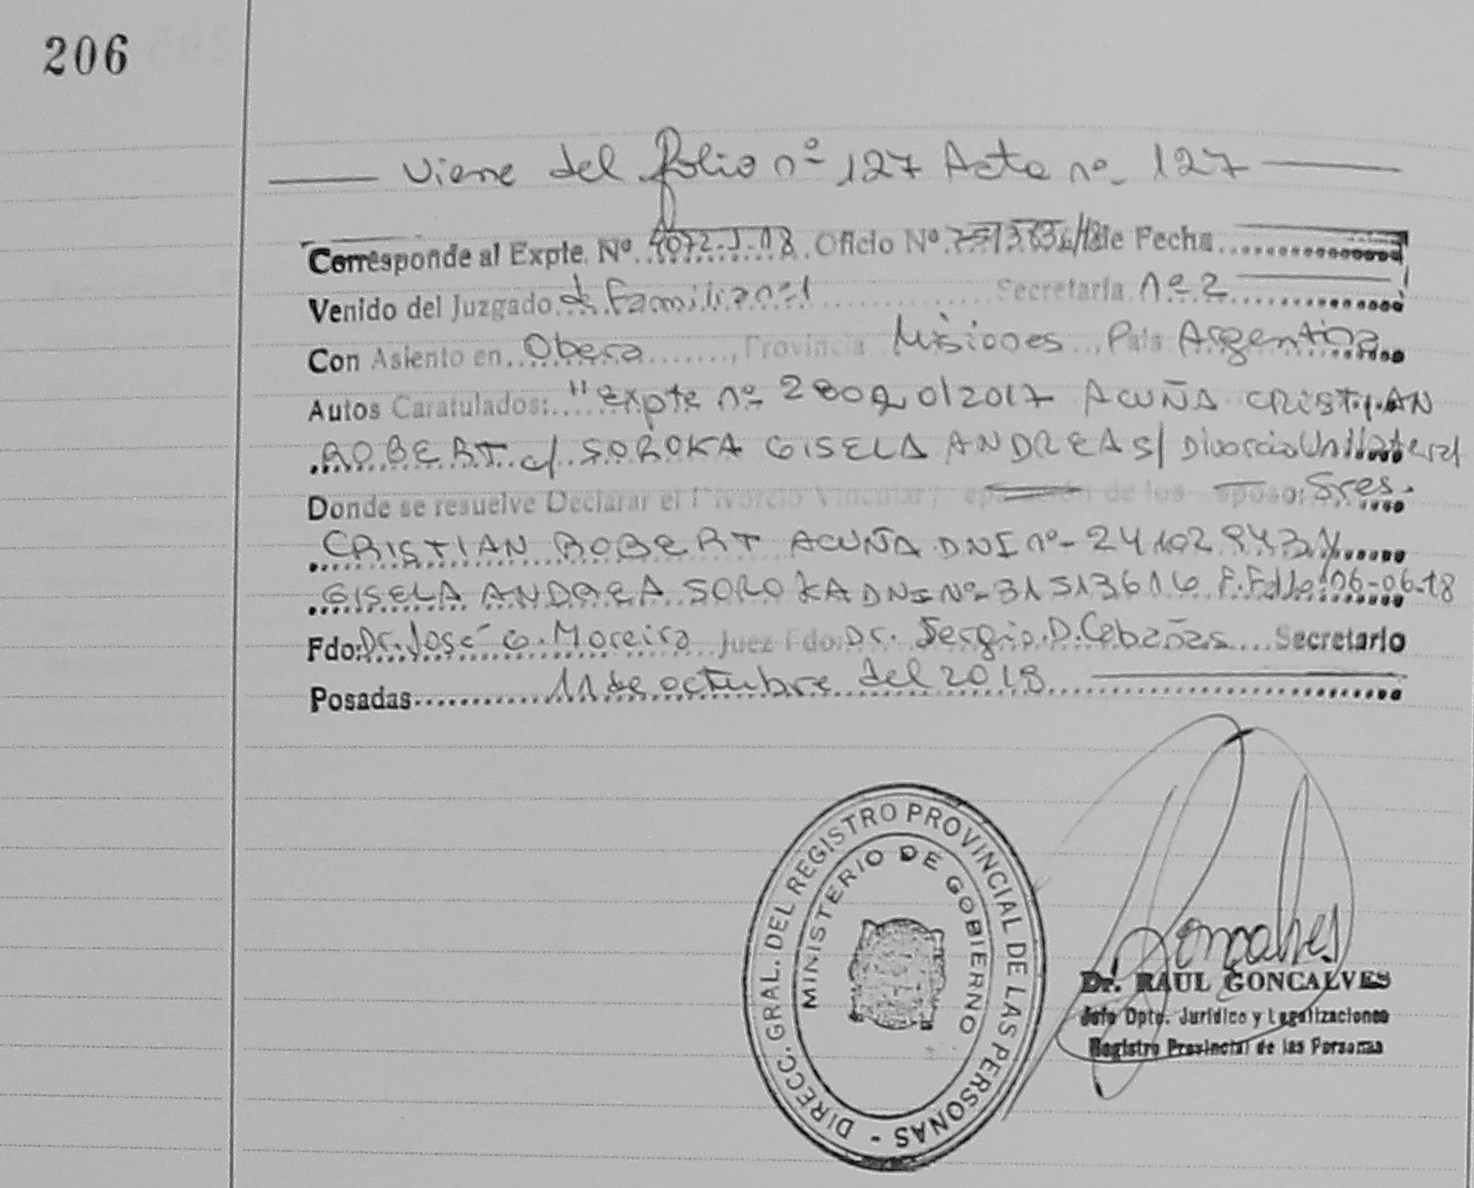 206
Viene del folio nº 127 Acta nº 127
Corresponde al Expte. Nº 4072-J-18. Oficio Nº de Fecha
Venido del Juzgado de Familia nº 1 Secretaria nº 2
Con Asiento en Obera, Provincia Misiones, País Argentina
Autos Caratulados: "Expte nº /2017 ACUÑA CRISTIAN
ROBERT c/ SOROKA GISELA ANDREA S/ Divorcio Unilateral
Donde se resuelve Declarar el Divorcio Vincular, de los Sres.
CRISTIAN ROBERT ACUÑA DNI nº 24.102.943 y
GISELA ANDREA SOROKA DNI Nº 31513616 F. Fallo: 06-06-18
Fdo: Dr. José G. Moreira Juez Fdo: Dr. Sergio D. Cebañas Secretario
Posadas 11 de octubre del 2018
DIRECC. GRAL. DEL REGISTRO PROVINCIAL DE LAS PERSONAS -
MINISTERIO DE GOBIERNO
Goncalves
Dr. RAUL GONCALVES
Jefe Dpto. Jurídico y Legalizaciones
Registro Provincial de las Personas